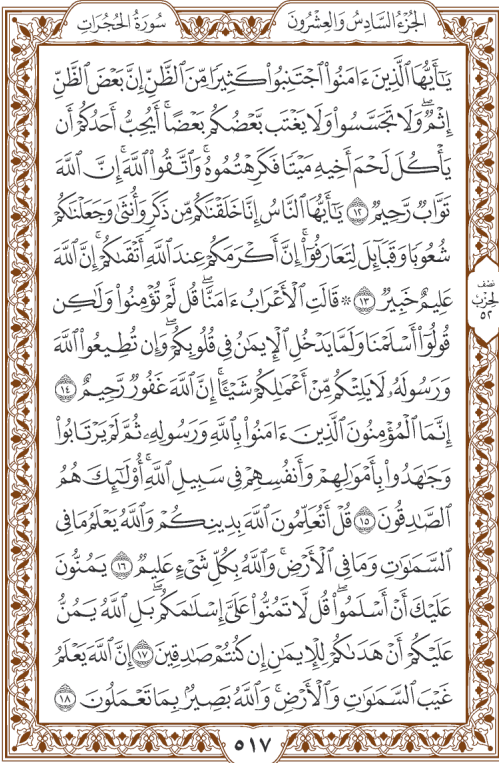 الجُزْءُ السَّادِسُ وَالعِشْرُونَ سُورَةُ الحُجُرَاتِ
يَٰٓأَيُّهَا ٱلَّذِينَ ءَامَنُوا۟ ٱجْتَنِبُوا۟ كَثِيرًا مِّنَ ٱلظَّنِّ إِنَّ بَعْضَ ٱلظَّنِّ
إِثْمٌ ۖ وَلَا تَجَسَّسُوا۟ وَلَا يَغْتَب بَّعْضُكُم بَعْضًا ۚ أَيُحِبُّ أَحَدُكُمْ أَن
يَأْكُلَ لَحْمَ أَخِيهِ مَيْتًا فَكَرِهْتُمُوهُ ۚ وَٱتَّقُوا۟ ٱللَّهَ ۚ إِنَّ ٱللَّهَ
تَوَّابٌ رَّحِيمٌ ١٢ يَٰٓأَيُّهَا ٱلنَّاسُ إِنَّا خَلَقْنَٰكُم مِّن ذَكَرٍ وَأُنثَىٰ وَجَعَلْنَٰكُمْ
شُعُوبًا وَقَبَآئِلَ لِتَعَارَفُوٓا۟ ۚ إِنَّ أَكْرَمَكُمْ عِندَ ٱللَّهِ أَتْقَىٰكُمْ ۚ إِنَّ ٱللَّهَ
عَلِيمٌ خَبِيرٌ ١٣ ۞ قَالَتِ ٱلْأَعْرَابُ ءَامَنَّا ۖ قُل لَّمْ تُؤْمِنُوا۟ وَلَٰكِن
قُولُوٓا۟ أَسْلَمْنَا وَلَمَّا يَدْخُلِ ٱلْإِيمَٰنُ فِى قُلُوبِكُمْ ۖ وَإِن تُطِيعُوا۟ ٱللَّهَ
وَرَسُولَهُۥ لَا يَلِتْكُم مِّنْ أَعْمَٰلِكُمْ شَيْـًٔا ۚ إِنَّ ٱللَّهَ غَفُورٌ رَّحِيمٌ ١٤
إِنَّمَا ٱلْمُؤْمِنُونَ ٱلَّذِينَ ءَامَنُوا۟ بِٱللَّهِ وَرَسُولِهِۦ ثُمَّ لَمْ يَرْتَابُوا۟
وَجَٰهَدُوا۟ بِأَمْوَٰلِهِمْ وَأَنفُسِهِمْ فِى سَبِيلِ ٱللَّهِ ۚ أُو۟لَٰٓئِكَ هُمُ
ٱلصَّٰدِقُونَ ١٥ قُلْ أَتُعَلِّمُونَ ٱللَّهَ بِدِينِكُمْ وَٱللَّهُ يَعْلَمُ مَا فِى
ٱلسَّمَٰوَٰتِ وَمَا فِى ٱلْأَرْضِ ۚ وَٱللَّهُ بِكُلِّ شَىْءٍ عَلِيمٌ ١٦ يَمُنُّونَ
عَلَيْكَ أَنْ أَسْلَمُوا۟ ۖ قُل لَّا تَمُنُّوا۟ عَلَىَّ إِسْلَٰمَكُم ۖ بَلِ ٱللَّهُ يَمُنُّ
عَلَيْكُمْ أَنْ هَدَىٰكُمْ لِلْإِيمَٰنِ إِن كُنتُمْ صَٰدِقِينَ ١٧ إِنَّ ٱللَّهَ يَعْلَمُ
غَيْبَ ٱلسَّمَٰوَٰتِ وَٱلْأَرْضِ ۚ وَٱللَّهُ بَصِيرٌۢ بِمَا تَعْمَلُونَ ١٨
نصف
الحزب
٥٢
٥١٧